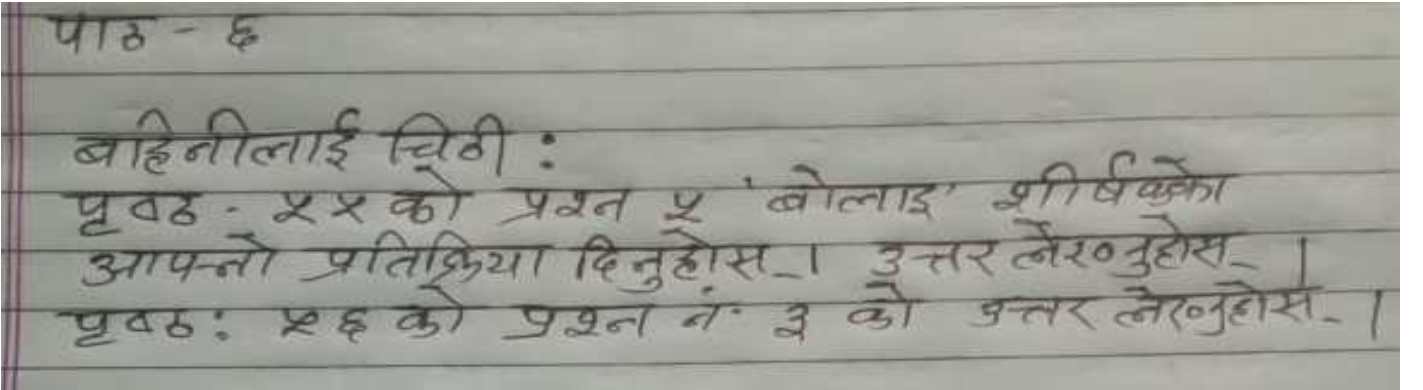 पाठ - ६
बहिनीलाई चिठी :
पृष्ठ - ५५ को प्रश्न ५ 'बोलाइ' शीर्षकको
आफ्नो प्रतिक्रिया दिनुहोस् । उत्तर लेख्नुहोस् ।
पृष्ठ : ५६ को प्रश्न नं. ३ को उत्तर लेख्नुहोस् ।